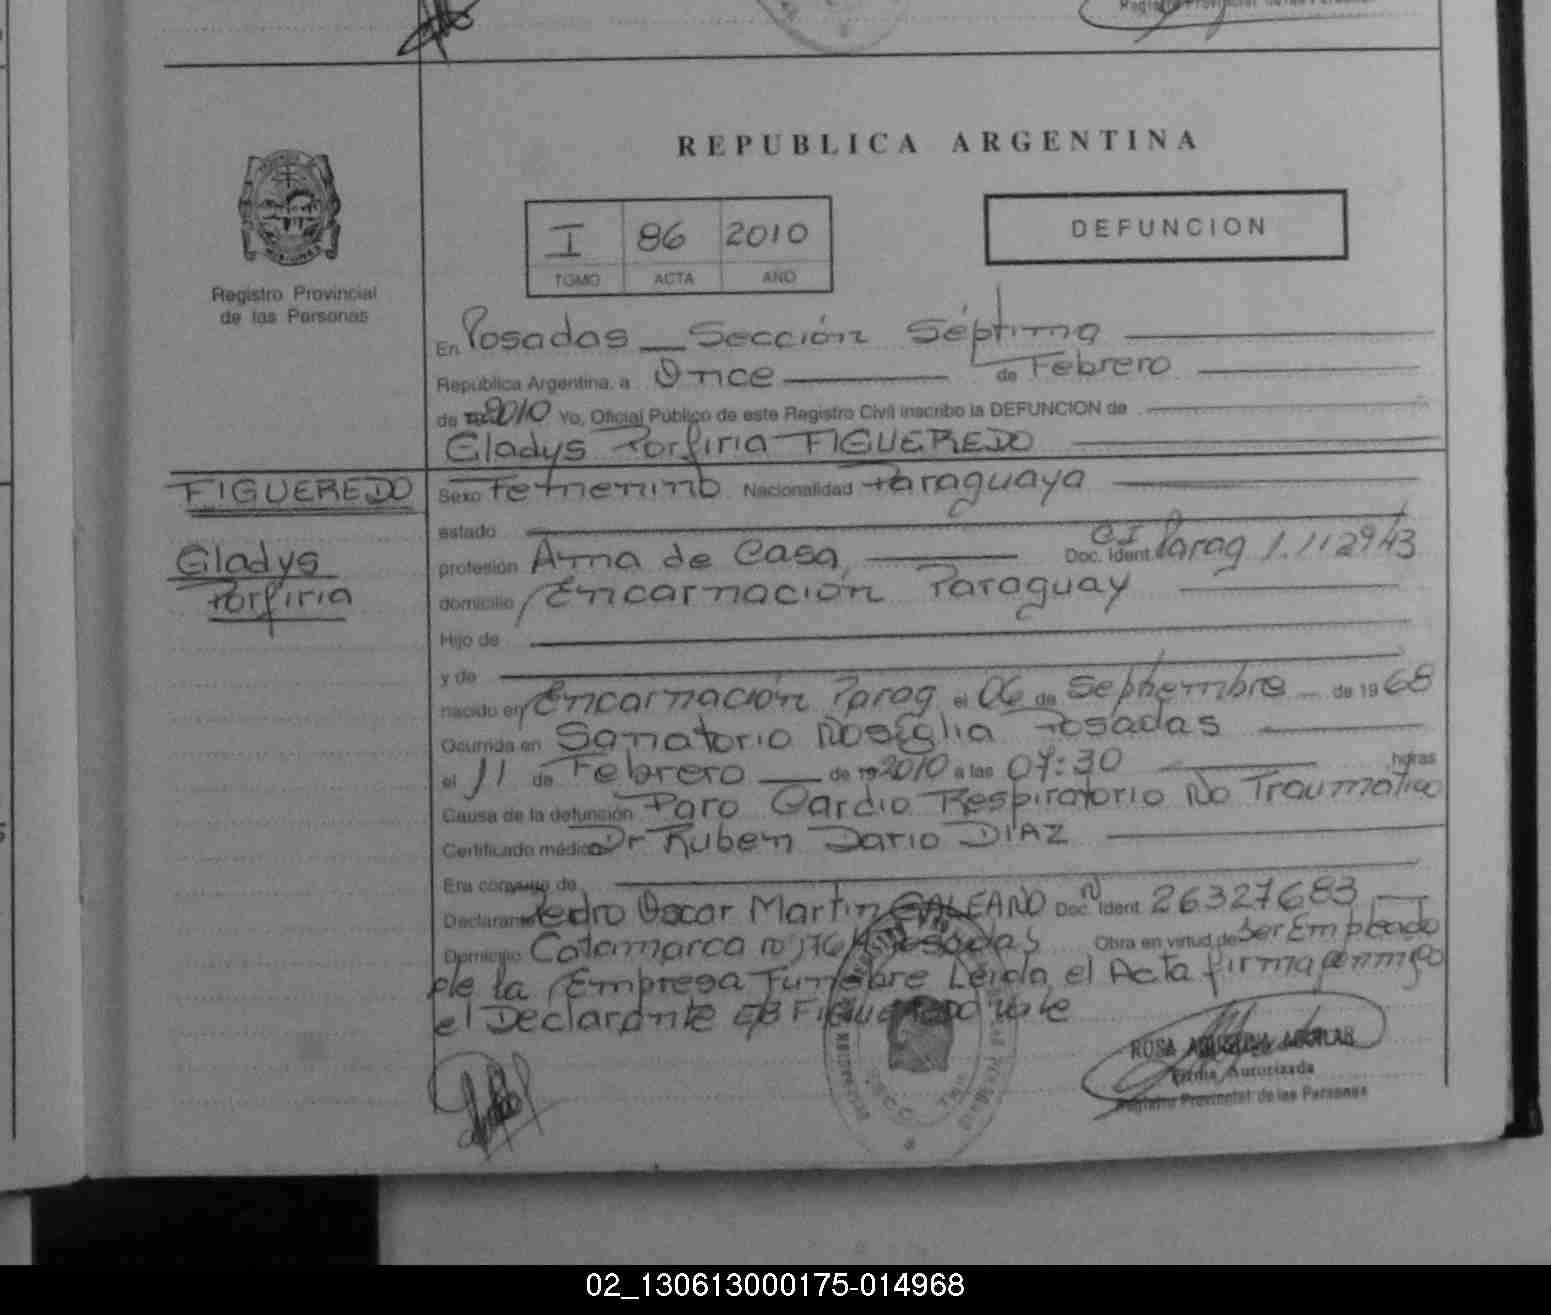 Registro Provincial de las Personas
REPUBLICA ARGENTINA
I 86 2010
TOMO ACTA AÑO
DEFUNCION
Registro Provincial
de las Personas
En Posadas Sección Séptima
República Argentina, a Once de Febrero
de 19 2010 Yo, Oficial Público de este Registro Civil inscribo la DEFUNCION de
Gladys Porfiria FIGUEREDO
FIGUEREDO
Gladys
Porfiria
Sexo Femenino Nacionalidad Paraguaya
estado
profesión Ama de Casa Doc. Ident. CI Parag 1.112943
domicilio Encarnación Paraguay
Hijo de
y de
nacido en Encarnación Parag el 06 de Septiembre de 1968
Ocurrida en Sanatorio Rosiglia Posadas
el 11 de Febrero de 19 2010 a las 07:30 horas
Causa de la defunción Paro Cardio Respiratorio No Traumático
Certificado médico Dr Ruben Dario DIAZ
Era cónyuge de
Declarante Pedro Oscar Martin GALEANO Doc. Ident. 26327683
Domicilio Catamarca Posadas Obra en virtud de Ser Empleado
de la Empresa Funebre Leida el Acta firma conmigo
el Declarante FIGUEREDO Vale
ROSA AGUILAR
Firma Autorizada
Registro Provincial de las Personas
02_130613000175-014968